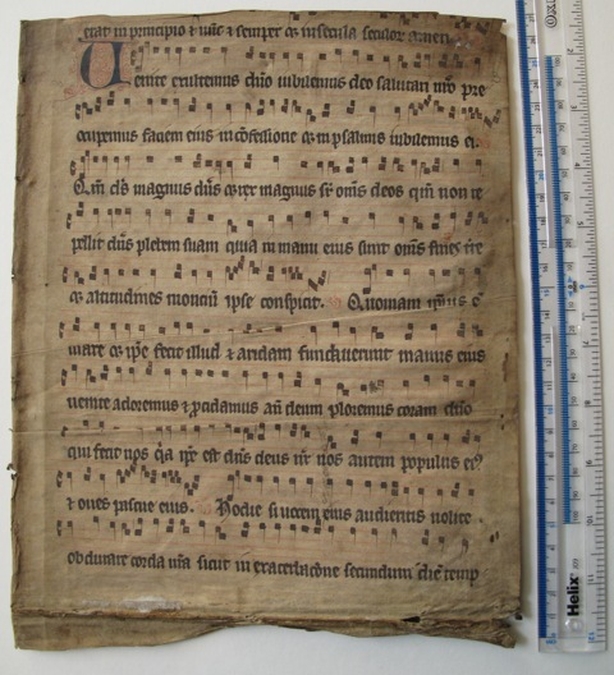 erat in principio ⁊ nūc ⁊ semper ⁊ in secula seculor amen
Uenite exultemus dño iubilemus deo salutari nro pre
occupemus faciem eius in cōfessione ⁊ in psalmis iubilemus ei.
Qm ds magnus dñs ⁊ rex magnus sr oms deos qm non re
pellit dñs plebem suam quia in manu eius sunt oms fines tre
⁊ altitudines montiū ipse conspicit. Quoniam ipsius ē
mare ⁊ ipe fecit illud ⁊ aridam fundauerunt manus eius
uenite adoremus ⁊ pcidamus an deum ploremus coram dño
qui fecit nos qia ipe est dñs deus nr nos autem populus ei9
⁊ oues pascue eius. Hodie si uocem eius audieritis nolite
obdurare corda ura sicut in exacerbacōne secundum diē temp
Helix